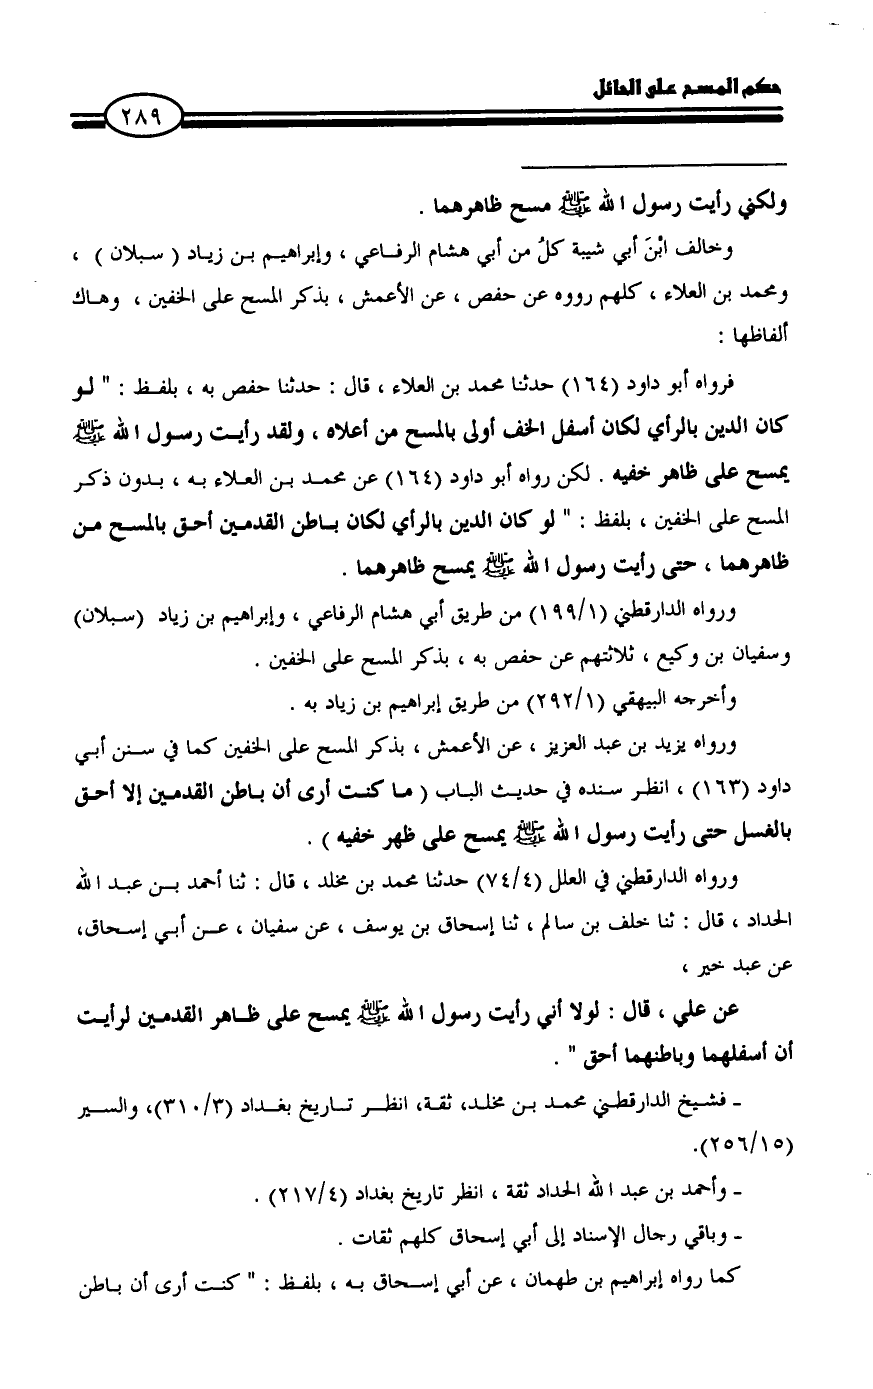 حكم المسح على الحائل
٢٨٩
ولكني رأيت رسول الله ﷺ مسح ظاهرهما .
وخالف ابْنَ أبي شيبة كلُ من أبي هشام الرفاعي ، وإبراهيم بن زياد ( سبلان ) ،
ومحمد بن العلاء ، كلهم رووه عن حفص ، عن الأعمش ، بذكر المسح على الخفين ، وهاك
ألفاظها :
فرواه أبو داود (١٦٤) حدثنا محمد بن العلاء ، قال : حدثنا حفص به ، بلفظ : " لو
كان الدين بالرأي لكان أسفل الخف أولى بالمسح من أعلاه ، ولقد رأيت رسول الله ﷺ
يمسح على ظاهر خفيه . لكن رواه أبو داود (١٦٤) عن محمد بن العلاء به ، بدون ذكر
المسح على الخفين ، بلفظ : " لو كان الدين بالرأي لكان باطن القدمين أحق بالمسح من
ظاهرهما ، حتى رأيت رسول الله ﷺ يمسح ظاهرهما .
ورواه الدارقطني (١٩٩/١) من طريق أبي هشام الرفاعي ، وإبراهيم بن زياد (سبلان)
وسفيان بن وكيع ، ثلاثتهم عن حفص به ، بذكر المسح على الخفين .
وأخرجه البيهقي (٢٩٢/١) من طريق إبراهيم بن زياد به .
ورواه يزيد بن عبد العزيز ، عن الأعمش ، بذكر المسح على الخفين كما في سنن أبي
داود (١٦٣) ، انظر سنده في حديث الباب ( ما كنت أرى أن باطن القدمين إلا أحق
بالغسل حتى رأيت رسول الله ﷺ يمسح على ظهر خفيه ) .
ورواه الدارقطني في العلل (٧٤/٤) حدثنا محمد بن مخلد ، قال : ثنا أحمد بن عبد الله
الحداد ، قال : ثنا خلف بن سالم ، ثنا إسحاق بن يوسف ، عن سفيان ، عن أبي إسحاق،
عن عبد خير ،
عن علي ، قال : لولا أني رأيت رسول الله ﷺ يمسح على ظاهر القدمين لرأيت
أن أسفلهما وباطنهما أحق " .
ـ فشيخ الدارقطني محمد بن مخلد، ثقة، انظر تاريخ بغداد (٣١٠/٣)، والسير
(٢٥٦/١٥).
ـ وأحمد بن عبد الله الحداد ثقة ، انظر تاريخ بغداد (٢١٧/٤) .
ـ وباقي رجال الإسناد إلى أبي إسحاق كلهم ثقات .
كما رواه إبراهيم بن طهمان ، عن أبي إسحاق به ، بلفظ : " كنت أرى أن باطن